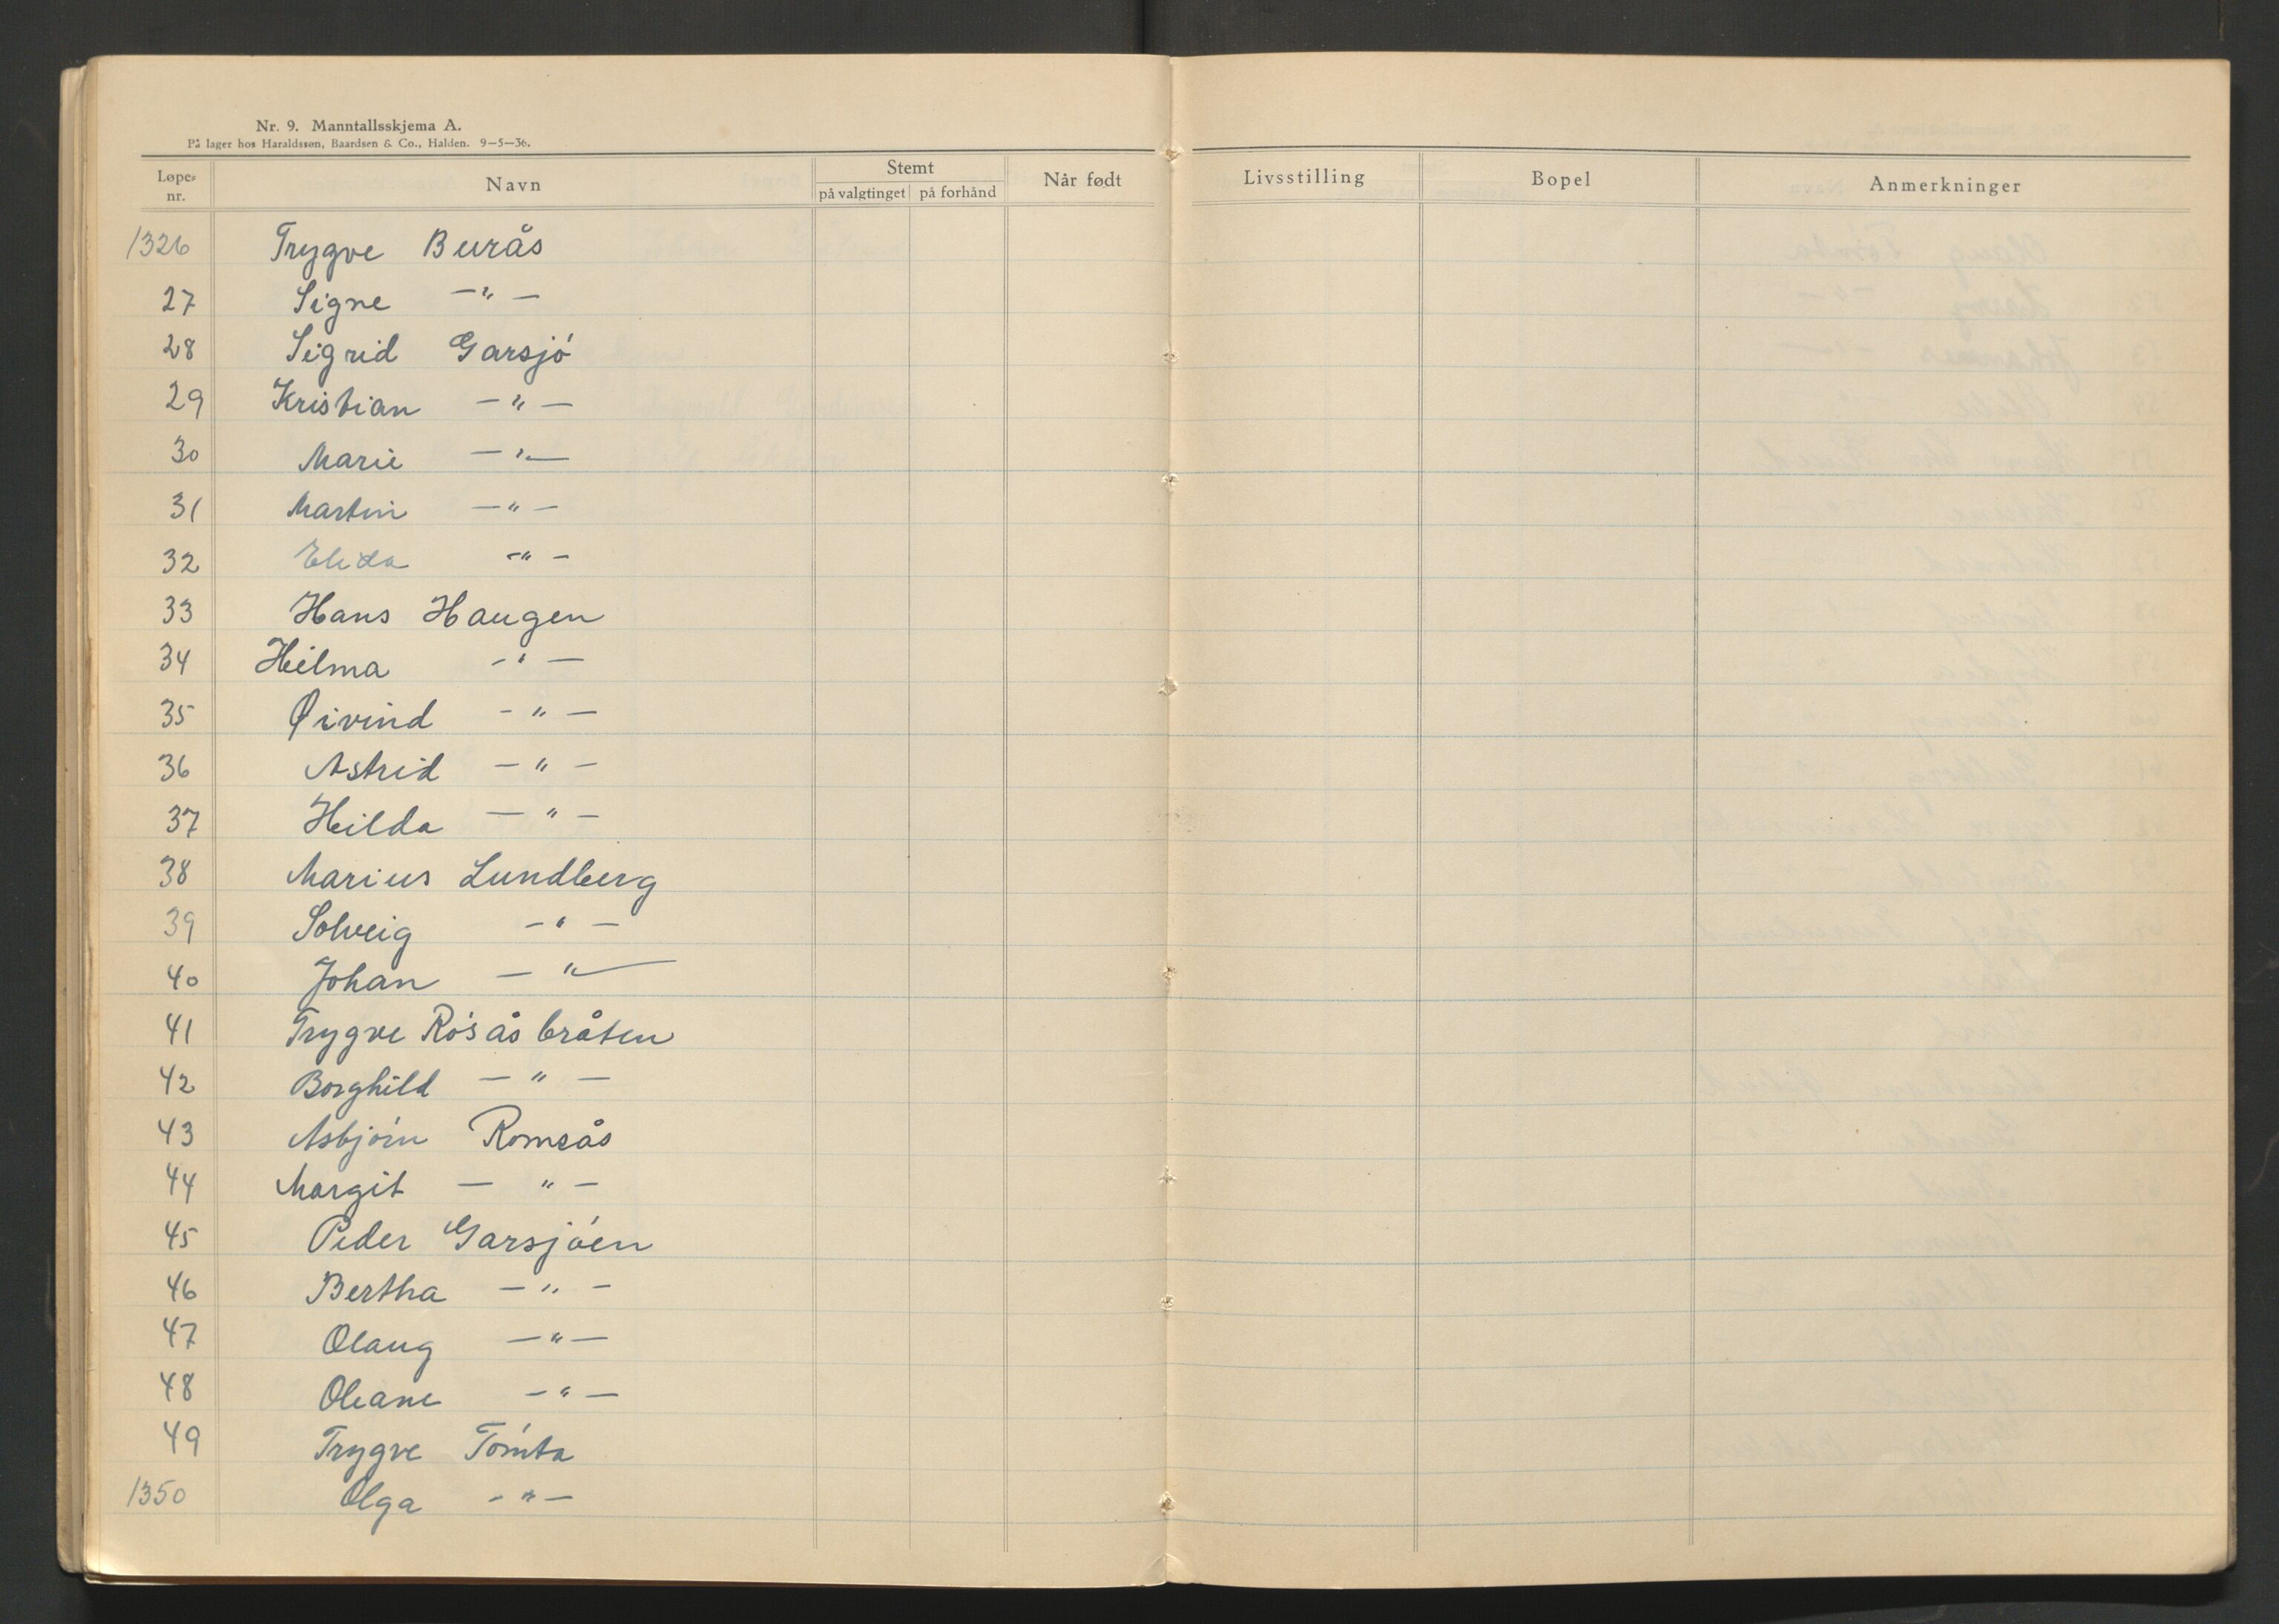 Nr. 9. Manntallsskjema A.
På lager hos Haraldssøn, Baardsen & Co., Halden. 9–5–36.
Løpe-nr. Navn Stemt på valgtinget på forhånd Når født Livsstilling Bopel Anmerkninger
1326 Trygve Burås
27 Signe —"—
28 Sigrid Garsjó
29 Kristian —"—
30 Marie —"—
31 Martin —"—
32 Elida —"—
33 Hans Haugen
34 Hilma —"—
35 Øivind —"—
36 Astrid —"—
37 Hilda —"—
38 Marius Lundberg
39 Solveig —"—
40 Johan —"—
41 Trygve Rósåsbråten
42 Borghild —"—
43 Asbjórn Romsås
44 Margit —"—
45 Peder Garsjóen
46 Bertha —"—
47 Olaug —"—
48 Oleane —"—
49 Trygve Tómta
1350 Olga —"—